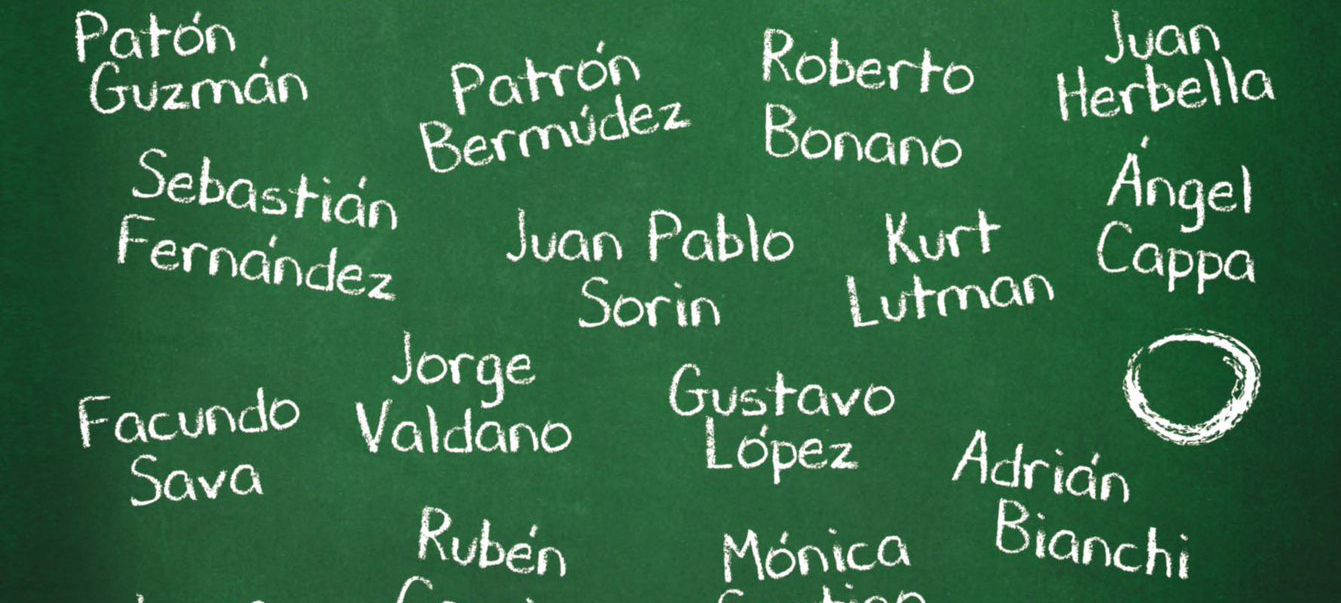 Patón
Guzmán
Patrón
Bermúdez
Roberto
Bonano
Juan
Herbella
Sebastián
Fernández
Juan Pablo
Sorin
Kurt
Lutman
Ángel
Cappa
Facundo
Sava
Jorge
Valdano
Gustavo
López
Adrián
Bianchi
Rubén
Mónica